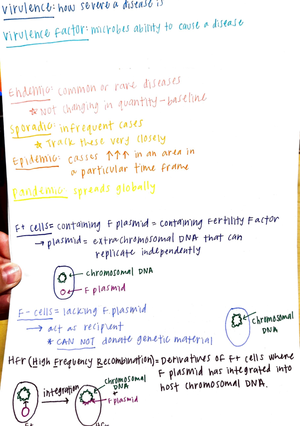 Virulence: how severe a disease is
Virulence Factor: microbes ability to cause a disease
Endemic: common or rare diseases
* Not changing in quantity-baseline
Sporadic: infrequent cases
* Track these very closely
Epidemic: casses ↑↑↑ in an area in
a particular time frame
Pandemic: spreads globally
F+ cells = containing F plasmid = containing Fertility Factor
→ plasmid = extrachromosomal DNA that can
replicate independently
chromosomal DNA
F plasmid
F- cells = lacking F. plasmid
→ act as recipient
* CAN NOT donate genetic material
chromosomal
DNA
Hfr (High Frequency Recombination) = Derivatives of F+ cells where
F plasmid has integrated into
host chromosomal DNA.
integration
chromosomal
DNA
F plasmid
F+